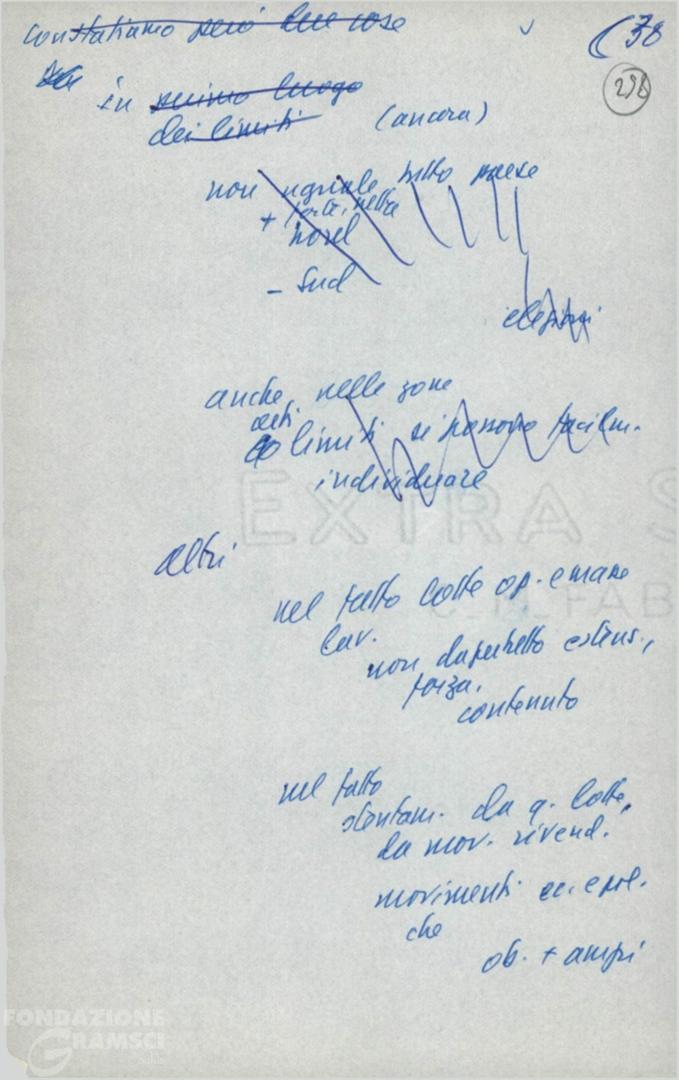 Constatiamo però due cose
38
298
in primo luogo
dei limiti (ancora)
non uguale tutto paese
+ forte, nella
nord
- Sud
elezioni
anche nelle zone
limiti si possono facilm.
individuare
altri
nel fatto lotte op. e masse
lav.
non dapertutto estens.,
forza,
contenuto
nel fatto
stentam. da q. lotte,
da mov. rivend.
movimenti ec. e pol.
che
ob. + ampi
EXTRA S
FAB
FONDAZIONE
GRAMSCI